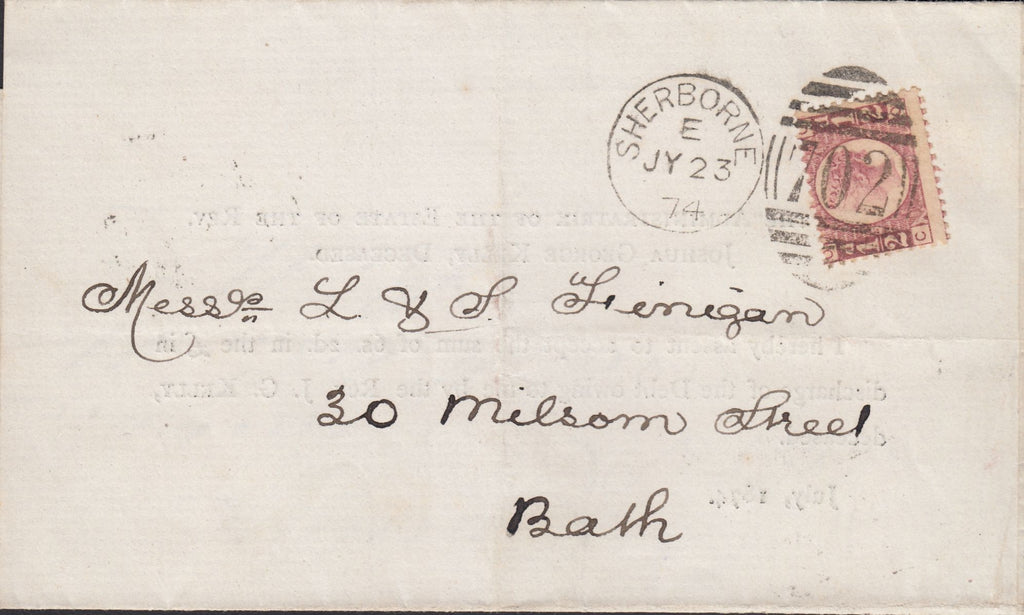 SHERBORNE
E
JY 23
74
702
Messrs L. & S. Finigan
30 Milsom Street
Bath
ADMINISTRATRIX OF THE ESTATE OF THE REV.
JOSHUA GEORGE KELLY, DECEASED.
I hereby assent to accept the sum of 6s. 2d. in the £ in
discharge of the Debt owing to me by the Rev. J. G. KELLY,
deceased.
July, 1874.